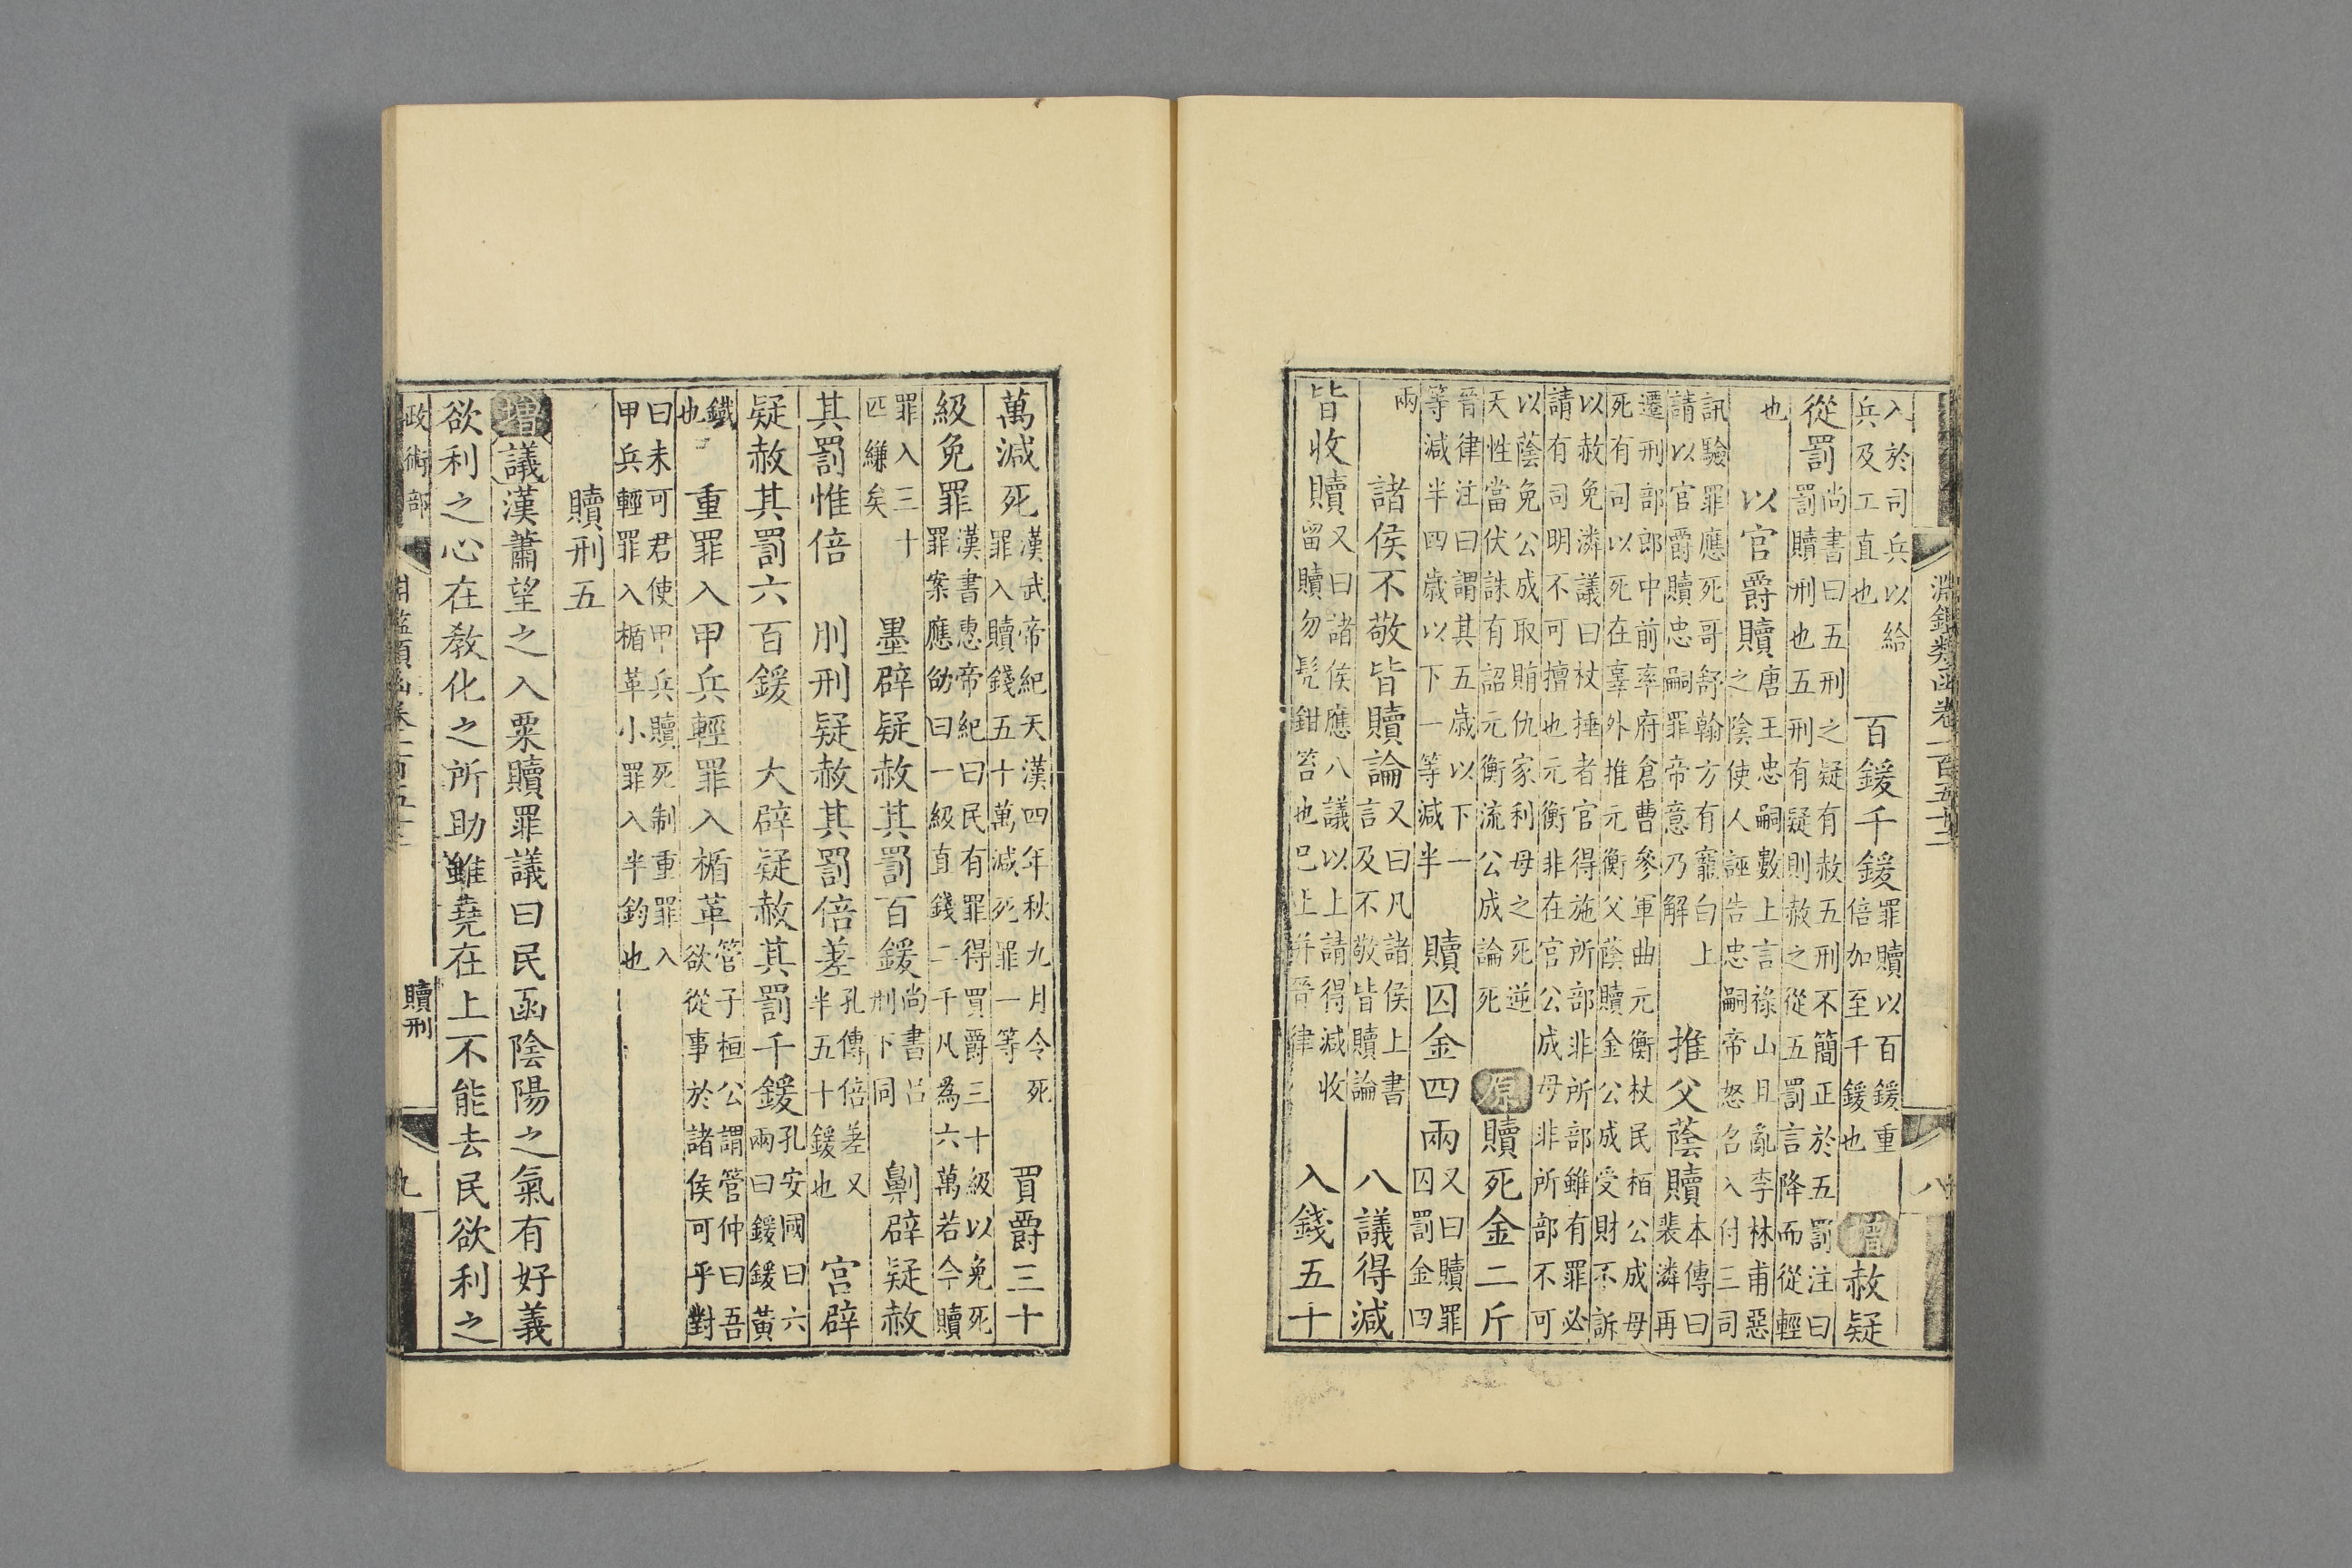 淵鑑類函卷一百五十二
八
入於司兵以給
兵及工直也
百鍰千鍰
罪贖以百鍰重
倍加至千鍰也
增赦疑
從罰
尚書曰五刑之疑有赦五刑不簡正於五罰注曰
罰贖刑也五刑有疑則赦之從五罰言降而從輕
也
以官爵贖
唐王忠嗣數上言祿山且亂李林甫惡
之陰使人誣告忠嗣帝怒召入付三司
訊驗罪應死哥舒翰方有寵白上
請以官爵贖忠嗣罪帝意乃解
推父蔭贖
本傳曰
裴潾再
遷刑部郎中前率府倉曹參軍曲元衡杖民栢公成母
死有司以死在辜外推元衡父蔭贖金公成受財不訴
以赦免潾議曰杖捶者官得施所部非所部雖有罪必
請有司明不可擅也元衡非在官公成母非所部不可
以蔭免公成取賄仇家利母之死逆
天性當伏誅有詔元衡流公成論死
原贖死金二斤
晉律注曰謂其五歲以下一
等減半四歲以下一等減半
贖囚金四兩
又曰贖罪
囚罰金四
兩
諸侯不敬皆贖論
又曰凡諸侯上書
言及不敬皆贖論
八議得減
皆收贖
又曰諸侯應八議以上請得減收
留贖勿髡鉗笞也已上并晉律
入錢五十
萬減死
漢武帝紀天漢四年秋九月令死
罪入贖錢五十萬減死罪一等
買爵三十
級免罪
漢書惠帝紀曰民有罪得買爵三十級以免死
罪案應劭曰一級直錢二千凡為六萬若今贖
罪入三十
匹縑矣
墨辟疑赦其罰百鍰
尚書呂
刑下同
劓辟疑赦
其罰惟倍
刖刑疑赦其罰倍差
孔傳倍差又
半五十鍰也
宮辟
疑赦其罰六百鍰
大辟疑赦其罰千鍰
孔安國曰六
兩曰鍰鍰黃
鐵
也
重罪入甲兵輕罪入楯革
管子桓公謂管仲曰吾
欲從事於諸侯可乎對
曰未可君使甲兵贖死制重罪入
甲兵輕罪入楯革小罪入半鈞也
贖刑五
增議漢蕭望之入粟贖罪議曰民函陰陽之氣有好義
欲利之心在教化之所助雖堯在上不能去民欲利之
政術部
淵鑑類函卷一百五十二
贖刑
九